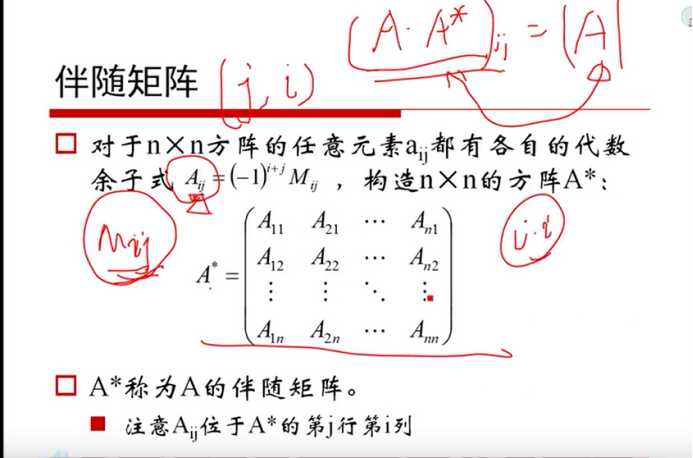 (A·A*)ij = |A|
伴随矩阵 (j,i)
对于n×n方阵的任意元素aij都有各自的代数
余子式 Aij=(−1)^{i+j} Mij ，构造n×n的方阵A*：
Mij
A* =
A11 A21 ⋯ An1
A12 A22 ⋯ An2
⋮ ⋮ ⋱ ⋮
A1n A2n ⋯ Ann
A*称为A的伴随矩阵。
注意Aij位于A*的第j行第i列